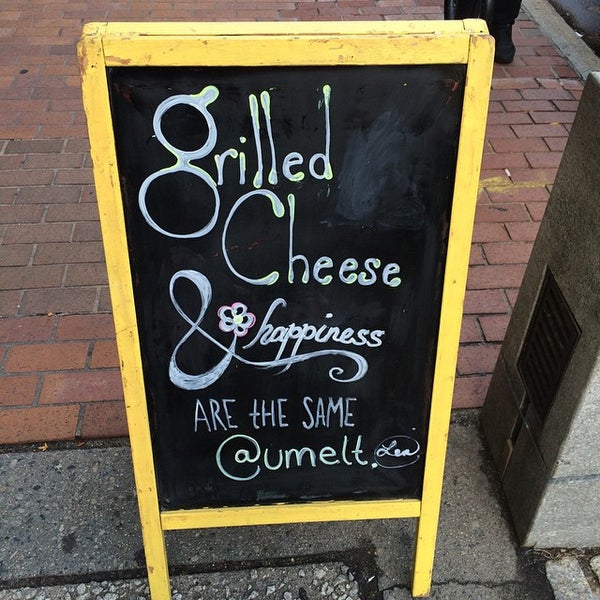 grilled
Cheese
& happiness
ARE THE SAME
@umelt.
Lea